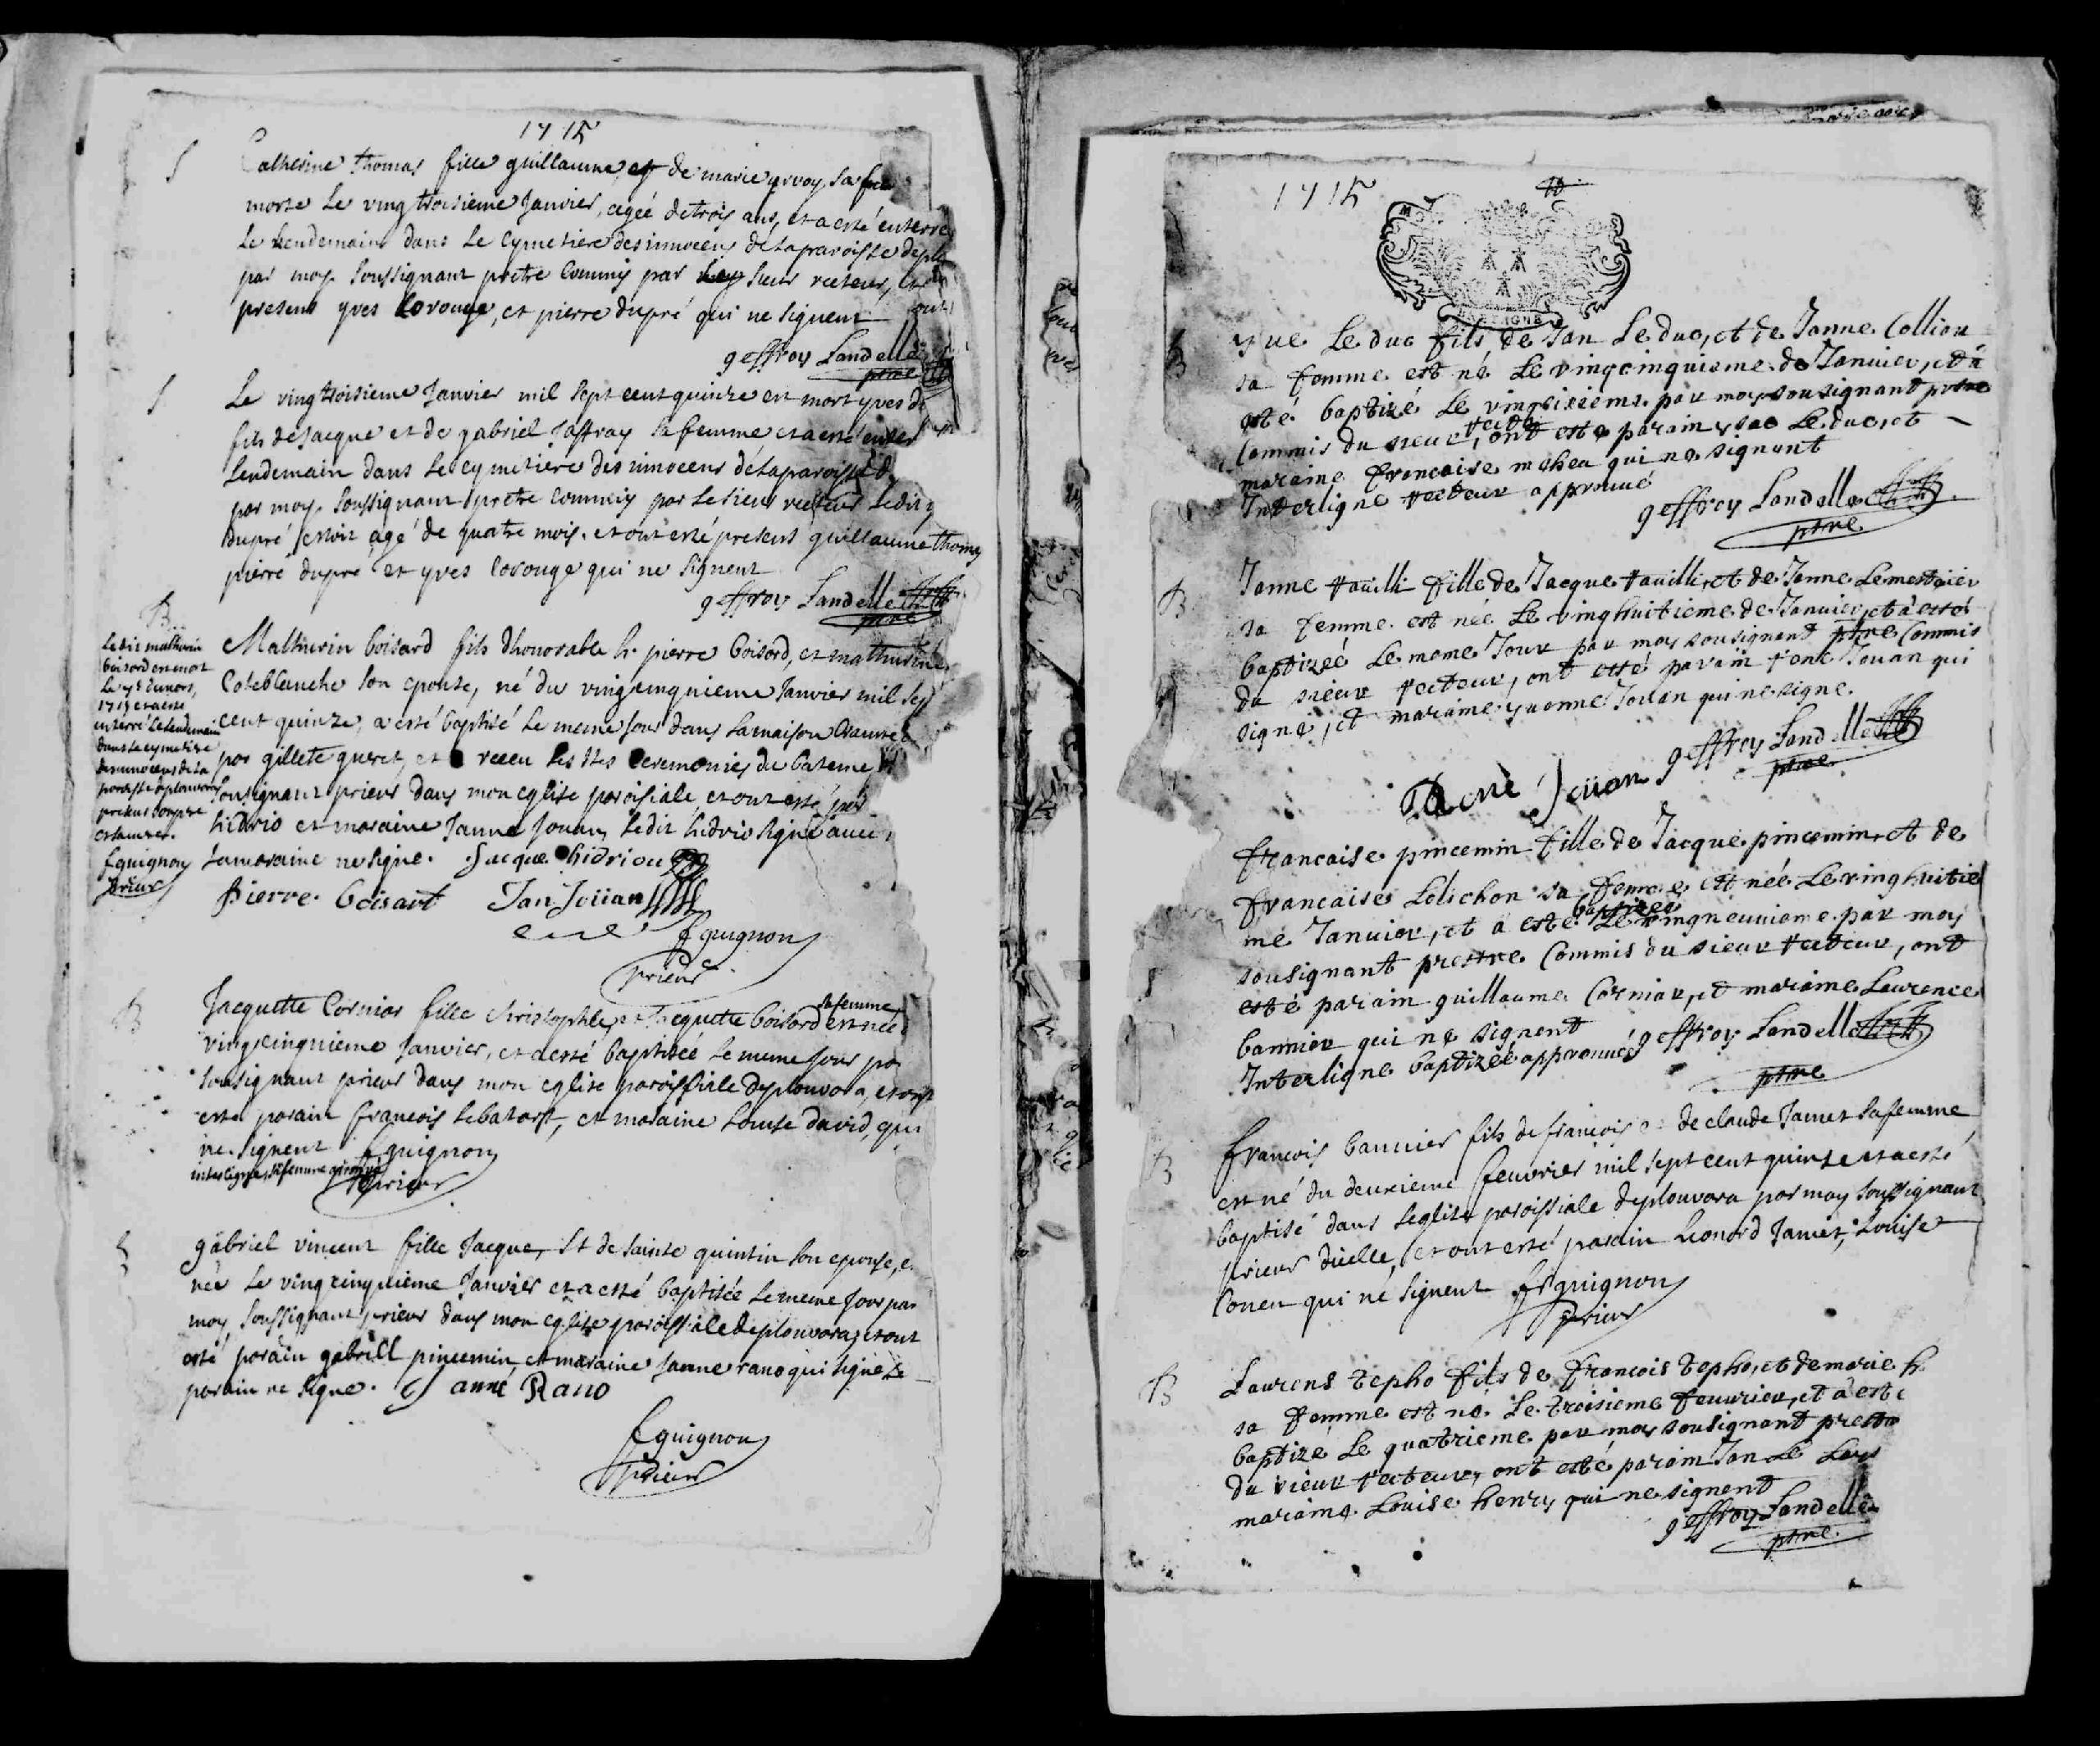 1715
S
Catherine thomas fille guillaume, et de marie yvoy, sa
morte le vingtroisieme Janvier, ageé de trois ans, et a esté enterré
le lendemain dans le cymetiere des innocens de la paroisse de
par moy soussignant prêtre commis par sieur recteur,
presens yves lorouge, et pierre dupré qui ne signent
geffroy Landelle
ptre
S
Le vingtroisieme Janvier mil sept cent quinze est mort yves
fils de Jacque et de gabriel Jaffray sa femme et a esté
lendemain dans le cymetiere des innocens de la paroisse
par moy soussignant prêtre commis par le sieur recteur ledit
dupré estoit agé de quatre mois, et ont esté presens guillaume thomas
pierre dupré et yves lorouge qui ne signent
geffroy Landelle
ptre
B
Ledit mathurin
boisard est mort
1715 et a esté
enterré le lendemain
dans le cymetiere
des innocens de la
paroisse de plouvora
fguignon
prieur
Mathurin boisard fils dhonorable h. pierre boisard, et mathurine
Coteblanche son epouse, né du vingcinquieme Janvier mil sept
cent quinze, a esté baptisé le meme jour dans la maison
par gillete guret, et receu les stes ceremonies du bateme
soussignant prieur dans mon eglise paroissiale, et ont esté
hidrio et maraine Janne Jouan, ledit hidrio signe
la maraine ne signe. Jacque hidriou
Pierre boisart Jan Joüan
fguignon
prieur
B
Jacquette Cormier fille christophle, Jacquette boisard est neé
sa femme
vingcinquieme Janvier, et a esté baptiseé le meme jour
soussignant prieur dans mon eglise paroissiale de plouvora, et ont
esté parain francois lebatart, et maraine Louise david, qui
ne signent fguignon
interligne, sa femme approuvé
prieur
gabriel vincent fille Jacque, et de Sainte quintin son epouse,
neé le vingcinquieme Janvier et a esté baptiseé le meme jour par
moy soussignant prieur dans mon eglise paroissiale de plouvora, et ont
esté parain gabriell pincemin, et maraine Janne rano qui signe le
parain ne signe. J anne Rano
fguignon
prieur
1715
BRETAGNE
B
yve Le duc fils de Jan Le duc, et de Janne Colliou
sa femme est né Le vingcinquieme de Janvier, et a
esté baptizé Le vingsixieme par moy sousignant ptre
recteur
Commis du sieur, ont esté parain ysac Le duc, et
maraine francoise mahea qui ne signent
Interligne recteur approuué
geffroy Landelle
ptre
B
Janne tauilli fille de Jacque tauilli, et de Janne Lemestaier
sa femme est née Le vinghuitieme de Janvier, et a esté
baptizeé Le meme Jour par moy sousignant ptre Commis
du sieur recteur, ont esté parain rene Jouan qui
signe, et maraine yuonne Joüan qui ne signe.
geffroy Landelle
ptre
Rene Joüan
francoise pincemin fille de Jacque pincemin, et de
francoise Lolichon sa femme est neé Le vinghuitie
baptizeé
me Januier, et a esté Le vingneuuieme par moy
sousignant prestre Commis du sieur recteur, ont
esté parain guillaume Cormier, et maraine Laurence
bannier qui ne signent geffroy Landelle
Interligne baptizeé approuué
ptre
B
francois bannier fils de francois et de claude Jamet sa femme
est né du deuxieme feuvrier mil sept cent quinze et a esté
baptisé dans l'eglise paroissiale de plouvora par moy soussignant
prieur dicelle, et ont esté parain Leonard Jamet, Louise
Conen qui ne signent fguignon
prieur
B
Laurens tepho fils de francois tepho, et de marie h
sa femme est né Le troisieme feuurier, et a esté
baptizé Le quatrieme par moy sousignant prestre
du sieur recteur, ont esté parain Jan Le
maraine Louise henry qui ne signent
geffroy Landelle
ptre